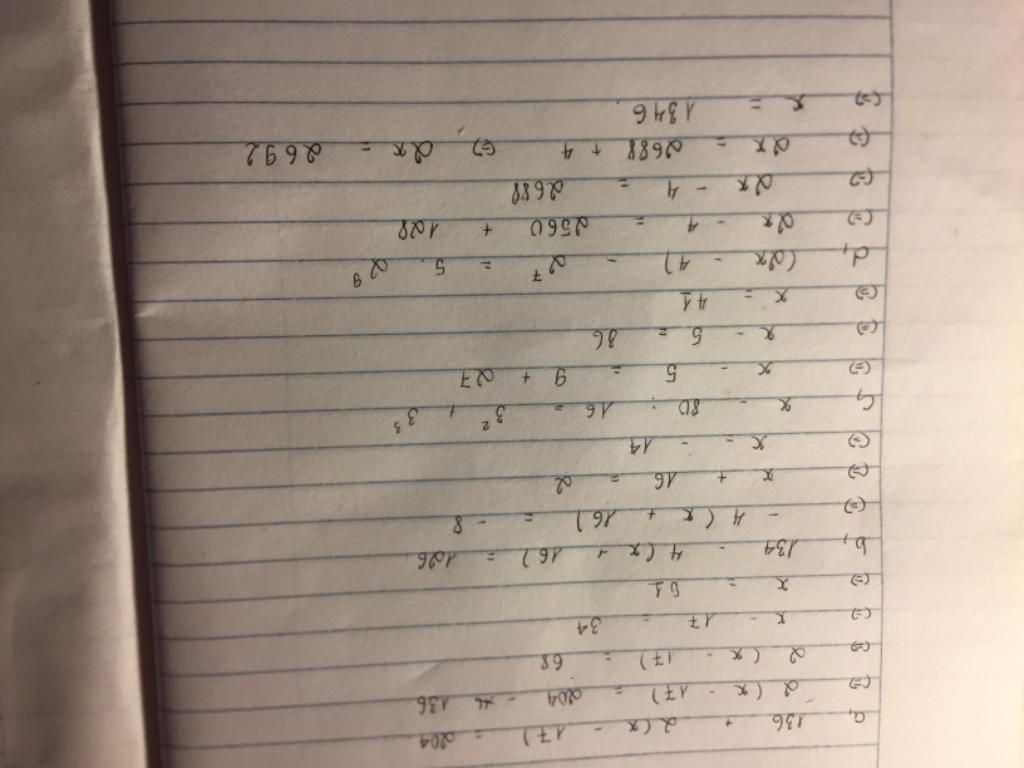 a, 136 + 2(x - 17) = 204
(=) 2(x - 17) = 204 - 136
(=) 2(x - 17) = 68
(=) x - 17 = 34
(=) x = 51
b, 134 - 4(x + 16) = 126
(=) - 4(x + 16) = - 8
(=) x + 16 = 2
(=) x = - 14
c, x - 80 : 16 = 3² + 3³
(=) x - 5 = 9 + 27
(=) x - 5 = 36
(=) x = 41
d, (2x - 4) - 2⁷ = 5 . 2⁹
(=) 2x - 4 = 2560 + 128
(=) 2x - 4 = 2688
(=) 2x = 2688 + 4 (=) 2x = 2692
(=) x = 1346